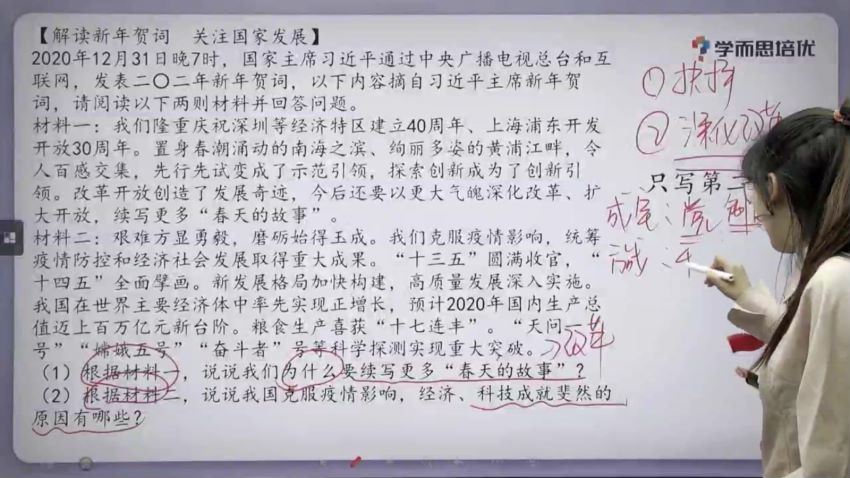 【解读新年贺词 关注国家发展】
2020年12月31日晚7时，国家主席习近平通过中央广播电视总台和互
联网，发表二〇二年新年贺词，以下内容摘自习近平主席新年贺
词，请阅读以下两则材料并回答问题。
材料一：我们隆重庆祝深圳等经济特区建立40周年、上海浦东开发
开放30周年。置身春潮涌动的南海之滨、绚丽多姿的黄浦江畔，令
人百感交集，先行先试变成了示范引领，探索创新成为了创新引
领。改革开放创造了发展奇迹，今后还要以更大气魄深化改革、扩
大开放，续写更多“春天的故事”。
材料二：艰难方显勇毅，磨砺始得玉成。我们克服疫情影响，统筹
疫情防控和经济社会发展取得重大成果。“十三五”圆满收官，“
十四五”全面擘画。新发展格局加快构建，高质量发展深入实施。
我国在世界主要经济体中率先实现正增长，预计2020年国内生产总
值迈上百万亿元新台阶。粮食生产喜获“十七连丰”。“天问一
号”“嫦娥五号”“奋斗者”号等科学探测实现重大突破。
（1）根据材料一，说说我们为什么要续写更多“春天的故事”？
（2）根据材料二，说说我国克服疫情影响，经济、科技成就斐然的
原因有哪些？
学而思培优
① 抉择
② 深化改革
只写第二
成就：党